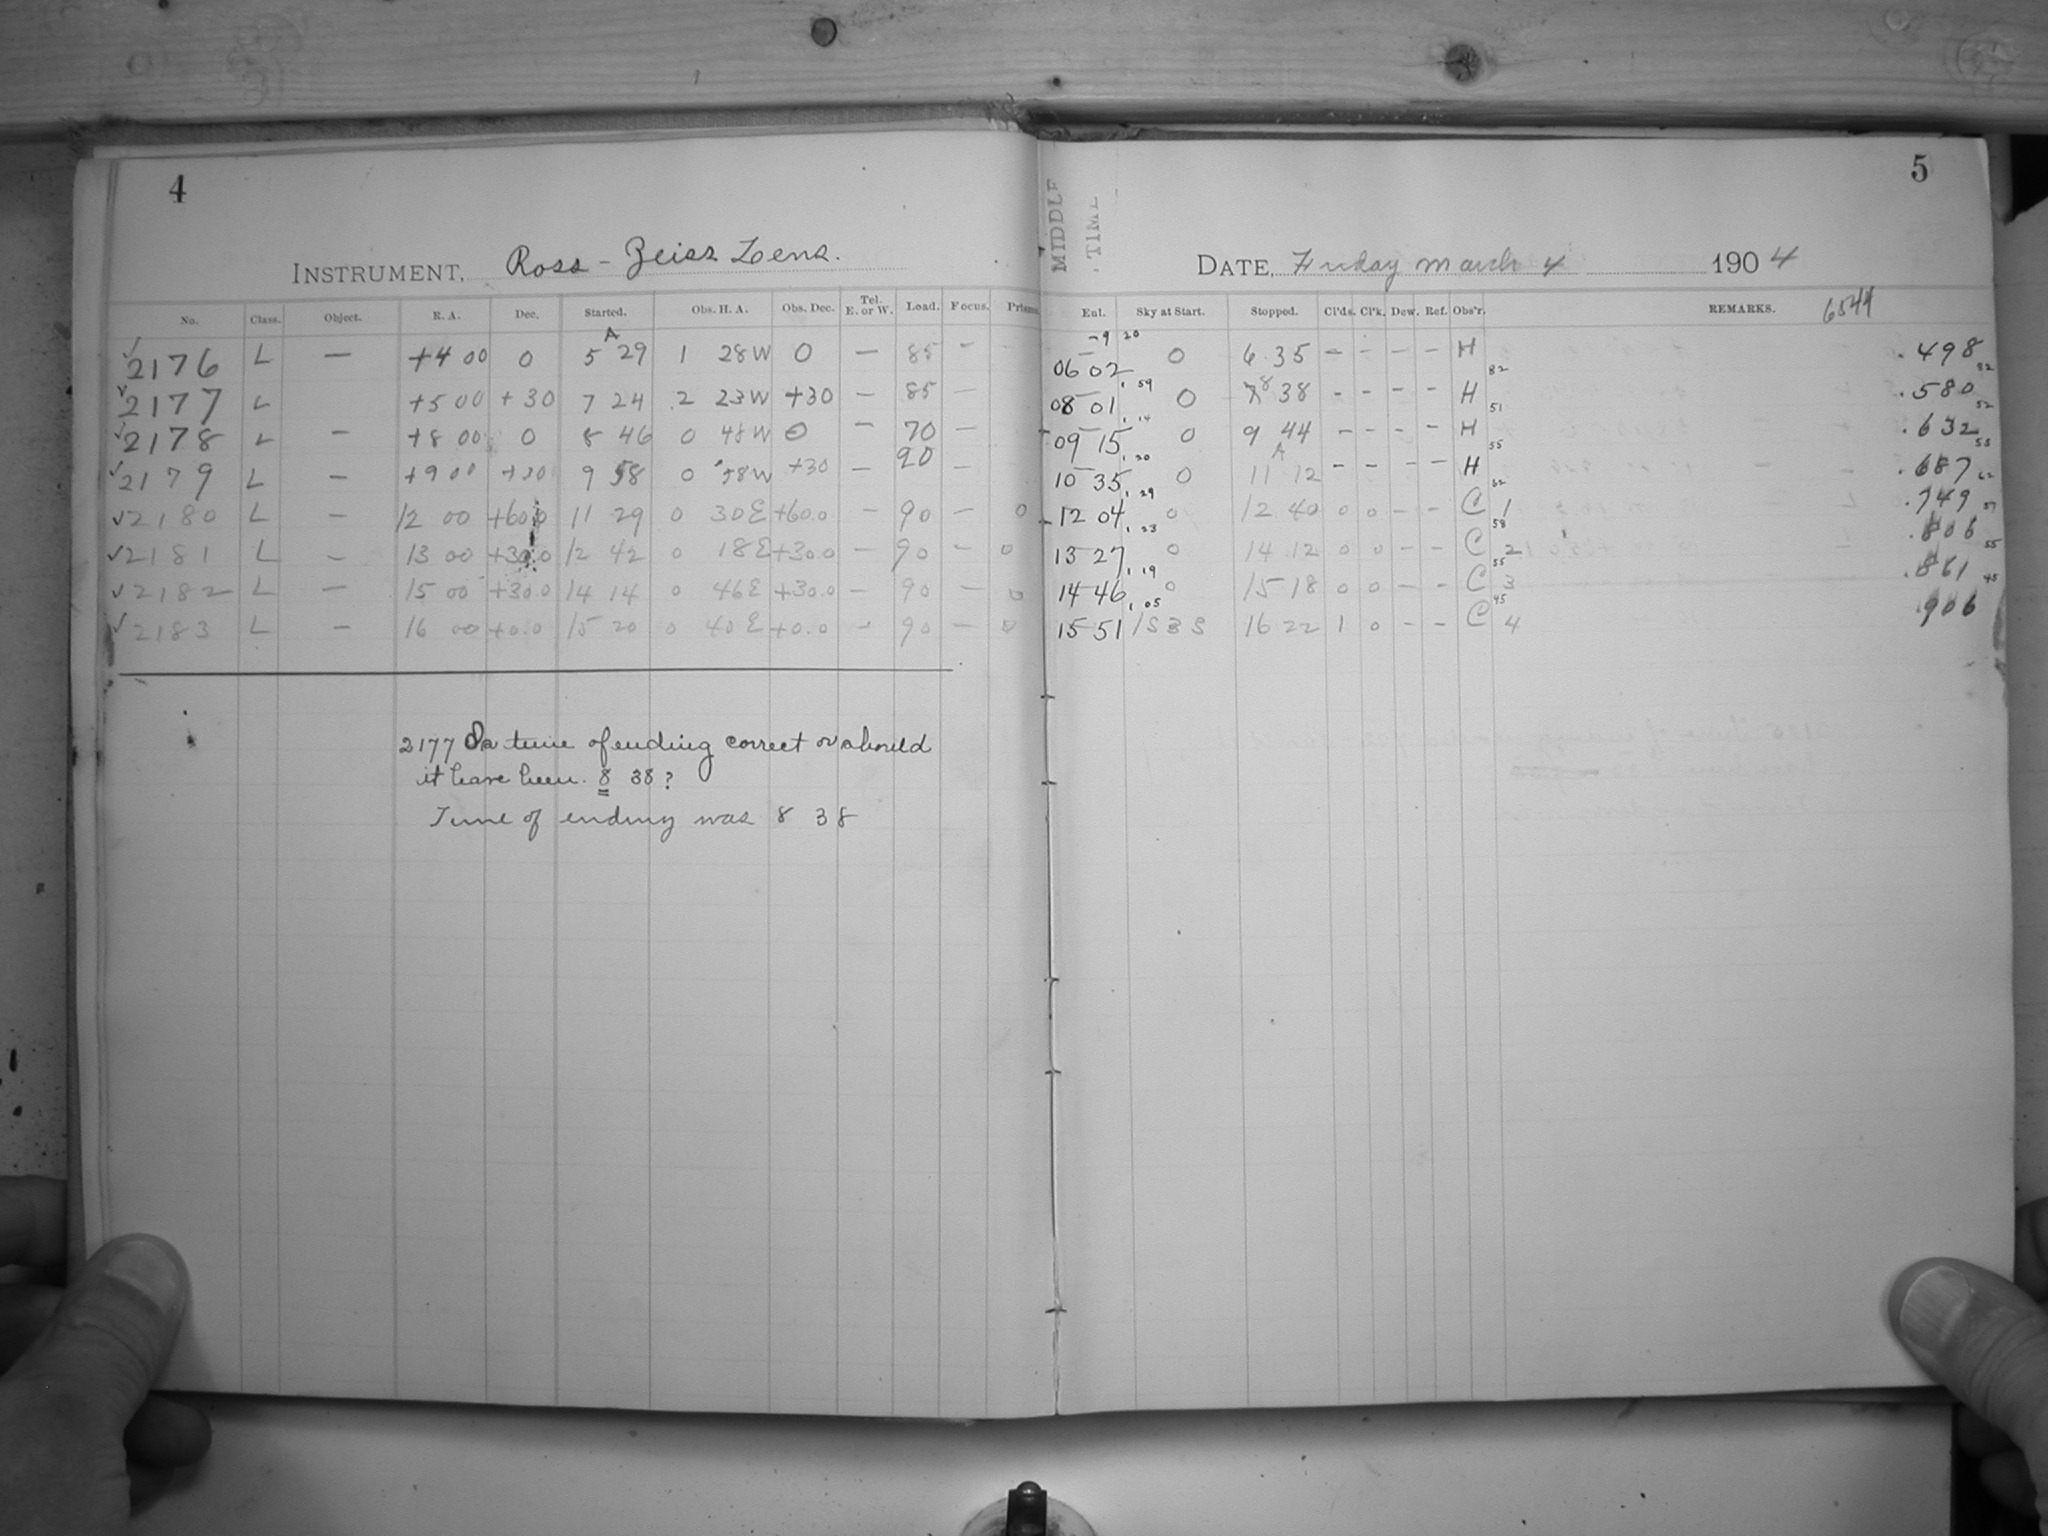 4
5
MIDDLE TIME
INSTRUMENT, Ross - Zeiss Lens.
DATE, Friday March 4 1904
No. Class. Object. R. A. Dec. Started. Obs. H. A. Obs. Dec. Tel. E. or W. Load. Focus. Prisms. Enl. Sky at Start. Stopped. Cl'ds. Cl'k. Dew. Ref. Obs'r. REMARKS. 6544
✓2176 L — +4 00 0 5 A 29 1 28W 0 — 85 - 06 02 -9 20 0 6 35 - - - - H .498
✓2177 L +5 00 +30 7 24 2 23W +30 — 85 — 08 01 , 59 0 7 8 38 - - - - H 82 .580 82
✓2178 L — +8 00 0 8 46 0 48W 0 - 70 — 09 15 , 14 0 9 44 - - - - H 51 .632 52
✓2179 L — +9 00 +30 9 58 0 38W +30 — 90 — 10 35 , 20 0 11 A 12 - - - - H 55 .687 55
✓2180 L — 12 00 +60.0 11 29 0 30E +60.0 - 90 - 0 12 04 , 29 0 12 40 0 0 - - C 1 62 .749 62
✓2181 L — 13 00 +30.0 12 42 0 18E +30.0 - 90 - 0 13 27 , 23 0 14 12 0 0 - - C 2 58 .806 57
✓2182 L — 15 00 +30.0 14 14 0 46E +30.0 - 90 - 0 14 46 , 19 0 15 18 0 0 - - C 3 55 .861 55
✓2183 L — 16 00 +0.0 15 20 0 40E +0.0 - 90 - 0 15 51 , 05 1S3S 16 22 1 0 - - C 4 45 .906 45
2177 Is time of ending correct or should
it have been 8 38?
Time of ending was 8 38